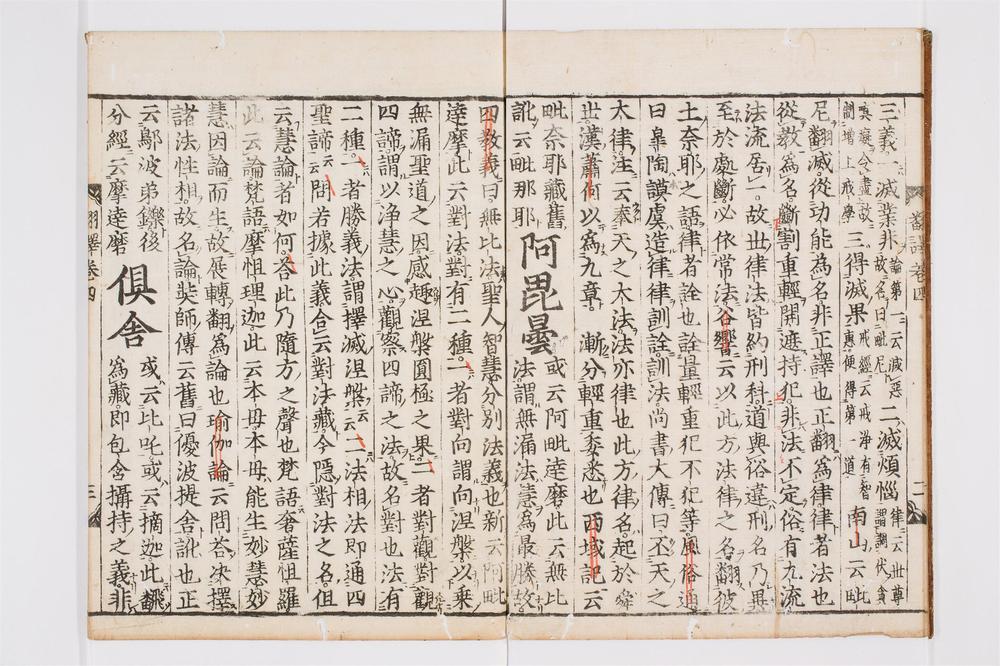 三義。一滅業非論第一云滅惡故名曰毗尼二滅煩惱律云世尊謂調伏貪
瞋癡令盡故增上戒學三得滅果戒經云戒淨有智慧便得第一道南山云毗
尼翻滅。從功能為名。非正譯也正翻為律。律者法也
從教為名。斷割重輕開遮持犯。非法不定。俗有九流
法流居一。故世律法皆約刑科。道與俗違刑名乃異
至於處斷必依常法。谷響云以此方法律之名翻彼
土奈耶之語。律者詮也詮量輕重犯不犯等。風俗通
曰皐陶謨虞造律。律訓詮。訓法尚書大傳曰丕天之
太律。注云奉天之大法。法亦律也此方律名。起於舜
世。漢蕭何以為九章。漸分輕重委悉也西域記云
毗奈耶藏舊
訛云毗那耶
阿毘曇
或云阿毗達磨此云無比
法謂無漏法慧為最勝故
四教義曰。無比法聖人智慧分別法義也新云阿毗
達摩。此云對法對有二種。一者對向謂向涅槃。以乗
無漏聖道之因。感趣涅槃圓極之果。二者對觀對觀
四諦。謂以淨慧之心。觀察四諦之法故名對也法有
二種。一者勝義法。謂擇滅涅槃。二法相法即通四
聖諦云問若據此義合云對法藏。今隱對法之名。但
云慧論者如何。答此乃隨方之聲也梵語奢薩怛羅
此云論梵語摩怛理迦。此云本母。本母能生妙慧。妙
慧因論而生。故展轉翻為論也瑜伽論云問答決擇
諸法性相。故名論奘師傳云舊曰優波提舍訛也正
云鄔波弟鑠後
分經云摩達磨
俱舍
或云比吒或云摘迦。此翻
為藏。即包含攝持之義。非
翻譯卷四
二
翻譯卷四
三